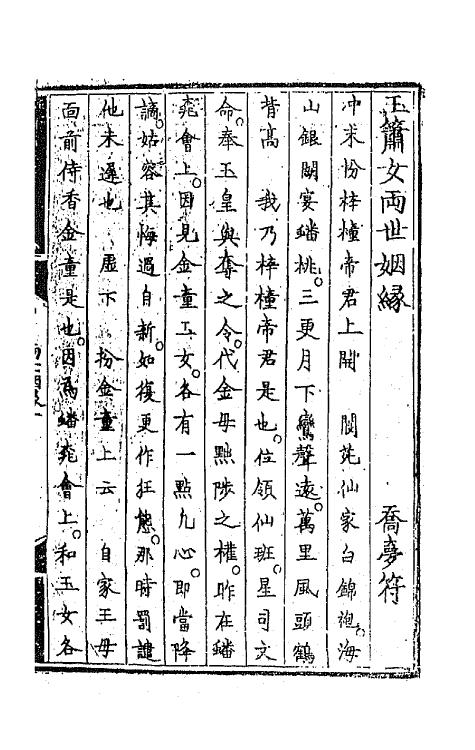 玉簫女兩世姻緣 喬夢符
冲末扮梓橦帝君上開 閬苑仙家白錦袍。海
山銀闕宴蟠桃。三更月下鸞聲遠。萬里風頭鶴
背高 我乃梓橦帝君是也。位領仙班。星司文
命。奉玉皇與奪之令。代金母㸃陟之權。昨在蟠
㳸會上。因見金童玉女。各有一㸃凡心。即當降
謫。姑容其悔過自新。如復更作狂態。那時罰譴
他未遲也 虛下 扮金童上云 自家王母
面前侍香金童是也。因爲蟠㳸會上。和玉女各